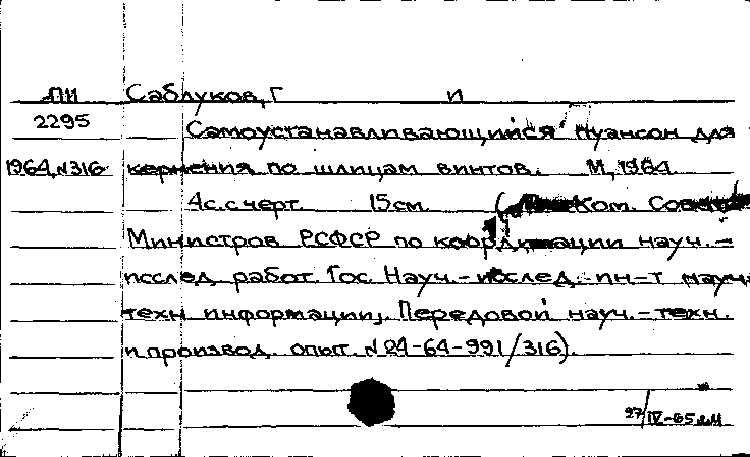 ПИ Саблуков, Г и
2295 Самоустанавливающийся пуансон для
1964, N316 кернения по шлицам винтов. М, 1964.
4с. с черт. 15см. (Ком. Совета
Министров РСФСР по координации науч.-
исслед. работ. Гос. Науч.-исслед. ин-т науч.
техн. информации. Передовой науч.-техн.
и производ. опыт. N 24-64-991/316).
27/IV-65